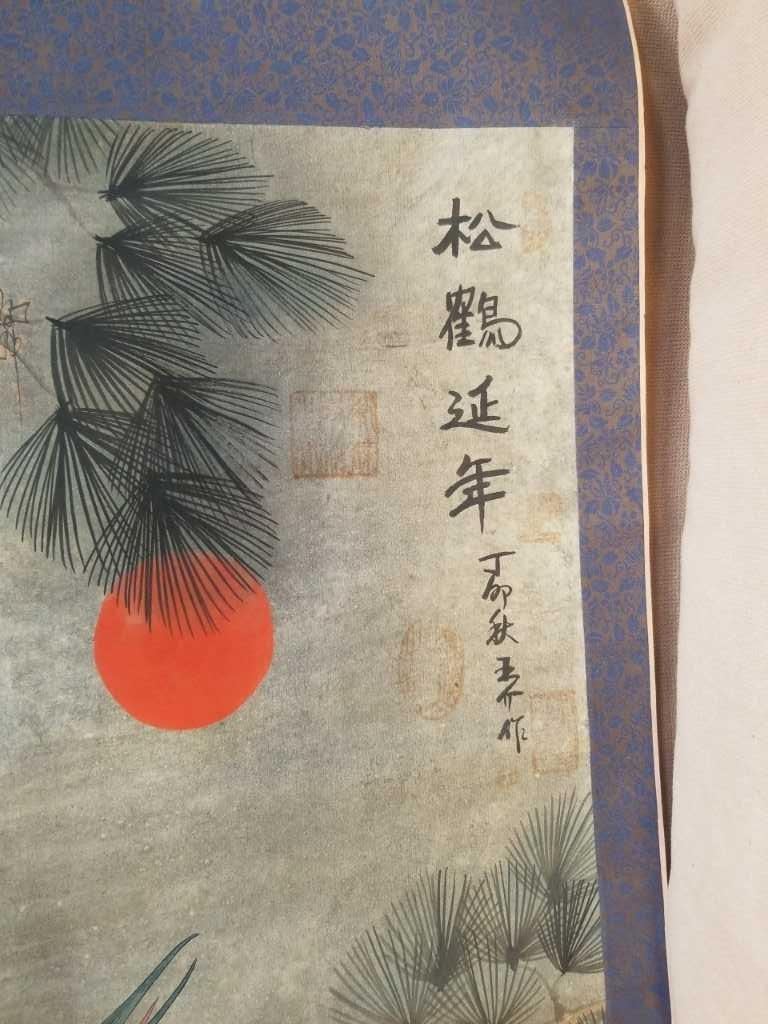 松鶴延年
丁卯秋王作